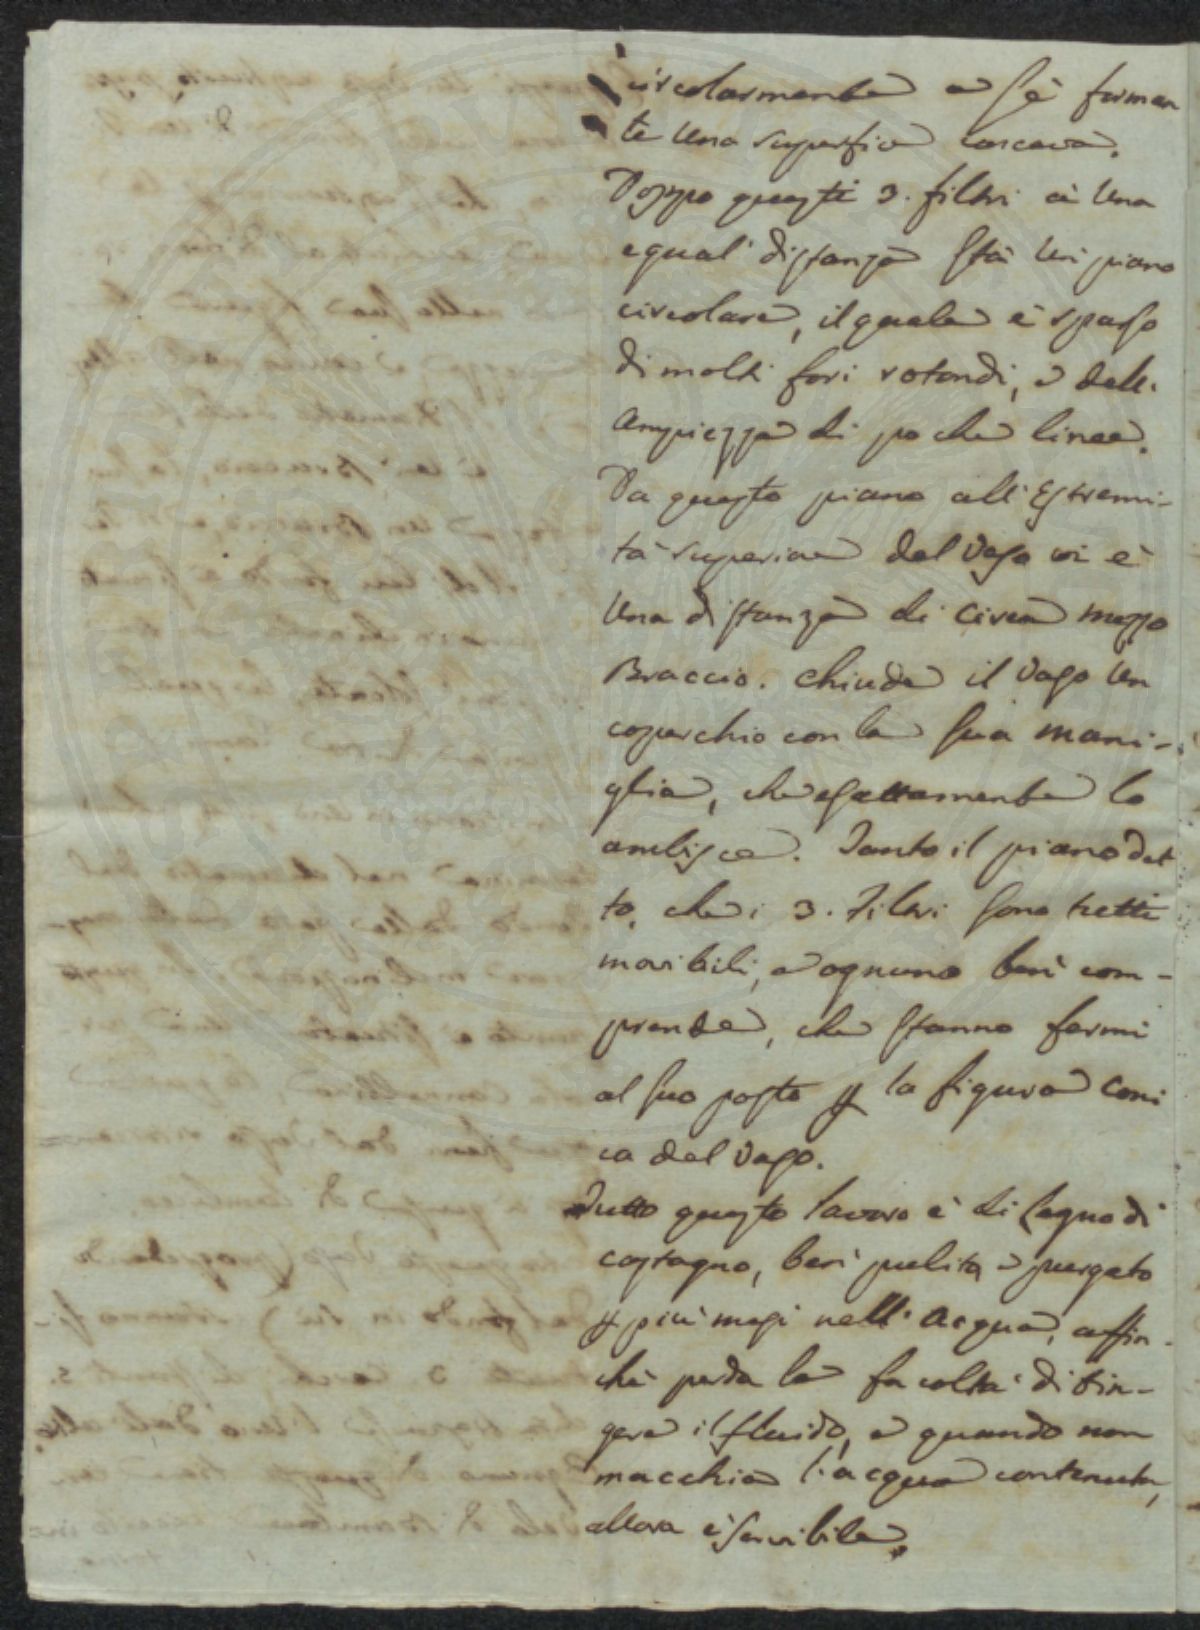 circolarmente a se forman
te una superficie concava.
Doppo questi 3. filtri à una
equal distanza stà un piano
circolare, il quale è sparso
di molti fori rotondi, e dell'
ampiezza di poche linee.
Da questo piano all'estremi-
tà superiore del Vaso vi è
una distanza di circa mezzo
Braccio. Chiude il Vaso un
coperchio con la sua mani-
glia, che esattamente lo
ambisce. Tanto il piano det
to, che i 3. Filtri sono tutti
movibili, e ognuno ben com-
prende, che stanno fermi
al suo posto p la figura coni
ca del Vaso.
Tutto questo lavoro è di Legno di
castagno, ben pulito e purgato
p più mesi nell'acqua, affin-
chè perda la facoltà di tin-
gere il fluido, e quando non
macchia l'acqua contenuta,
allora è servibile.